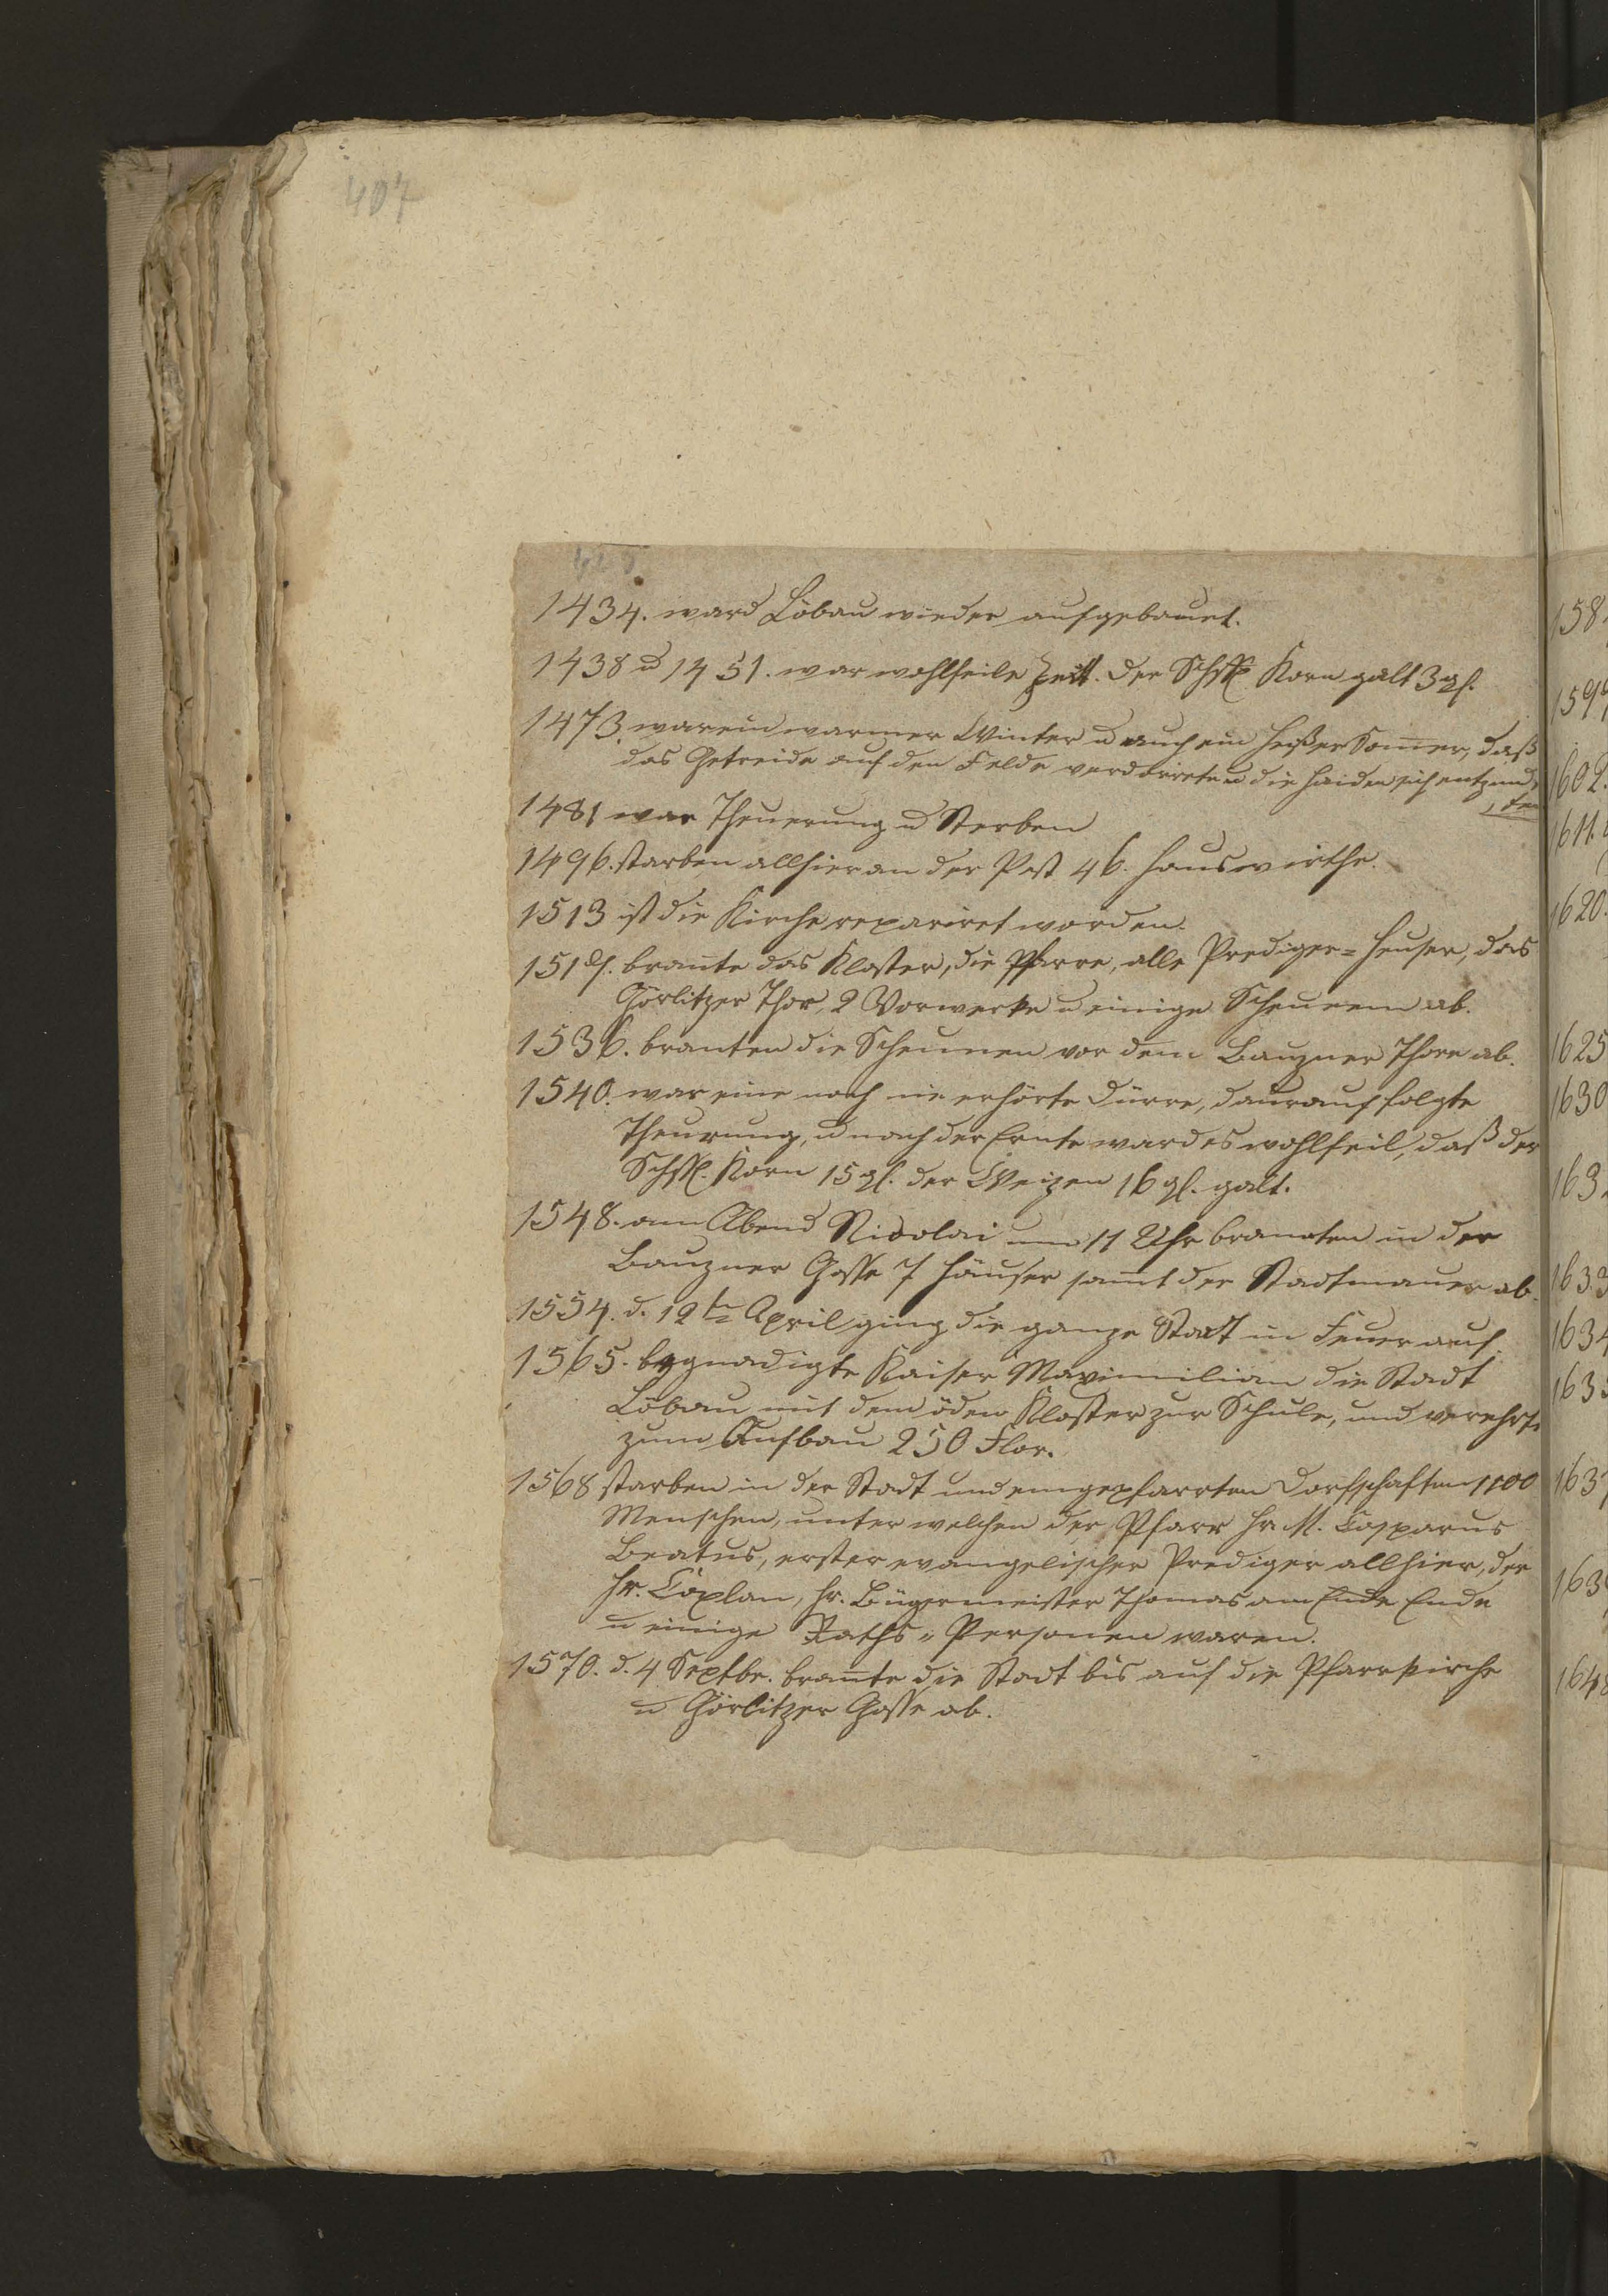 407
1434. ward Löbau wieder aufgebauet.
1438 u 1451. war wohlfeile Zeit. der Schffl Korn galt 3 gl.
1473. war ein warmer Winter u auch ein heißer Somer, daß
das Getreide auf den Felde verdorrete u die Haiden sich entzund,
, den
1481 war Theuerung u Sterben
1496. starben allhier an der Pest 46. Hauswirthe.
1513 ist die Kirche repariret worden.
brante das Kloster, die Pfarre, alle Prediger= Heuser, das
Görlitzer Thor, 2 Vorwerke u einige Scheunen ab.
1536. branten die Scheunen vor dem Bauzner Thore ab.
1540. war eine noch nie erhörte Dürre, daurauf folgte
Theurung, u nach der Ernte ward es wohlfeil, daß der
Schffl. Korn 15 gl. der Weizen 16 gl. galt.
1548. am Abend Nicolai um 11 Uhr brannten in der
Bauzner Gasse 7 Häuser samt der Stadtmauer ab.
1554. d. 12ten April ging die ganze Stadt in Feuer auf.
1565. begnadigte Kaiser Maximilian die Stadt
Löbau mit dem öden Kloster zur Schule, und verehrte
zum Aufbau 250 Flor.
1568 starben in der Stadt und eingepfarrten Dorfschaften 1100
Menschen, unter welchen der Pfarr Hr M. Casparus
Beatus, erster evangelischer Prediger allhier, der
Hr. Caplan, Hr. Bügermeister Thomas am Ende Ende
u einige Raths= Personen waren.
1570. d. 4 Septbr. brante die Stadt bis auf die Pfarrkirche
u Görlitzer Gasse ab.
158
1599
1602.
1611.
1620.
1625
1630
163
1633
1634
163
163
163
1648